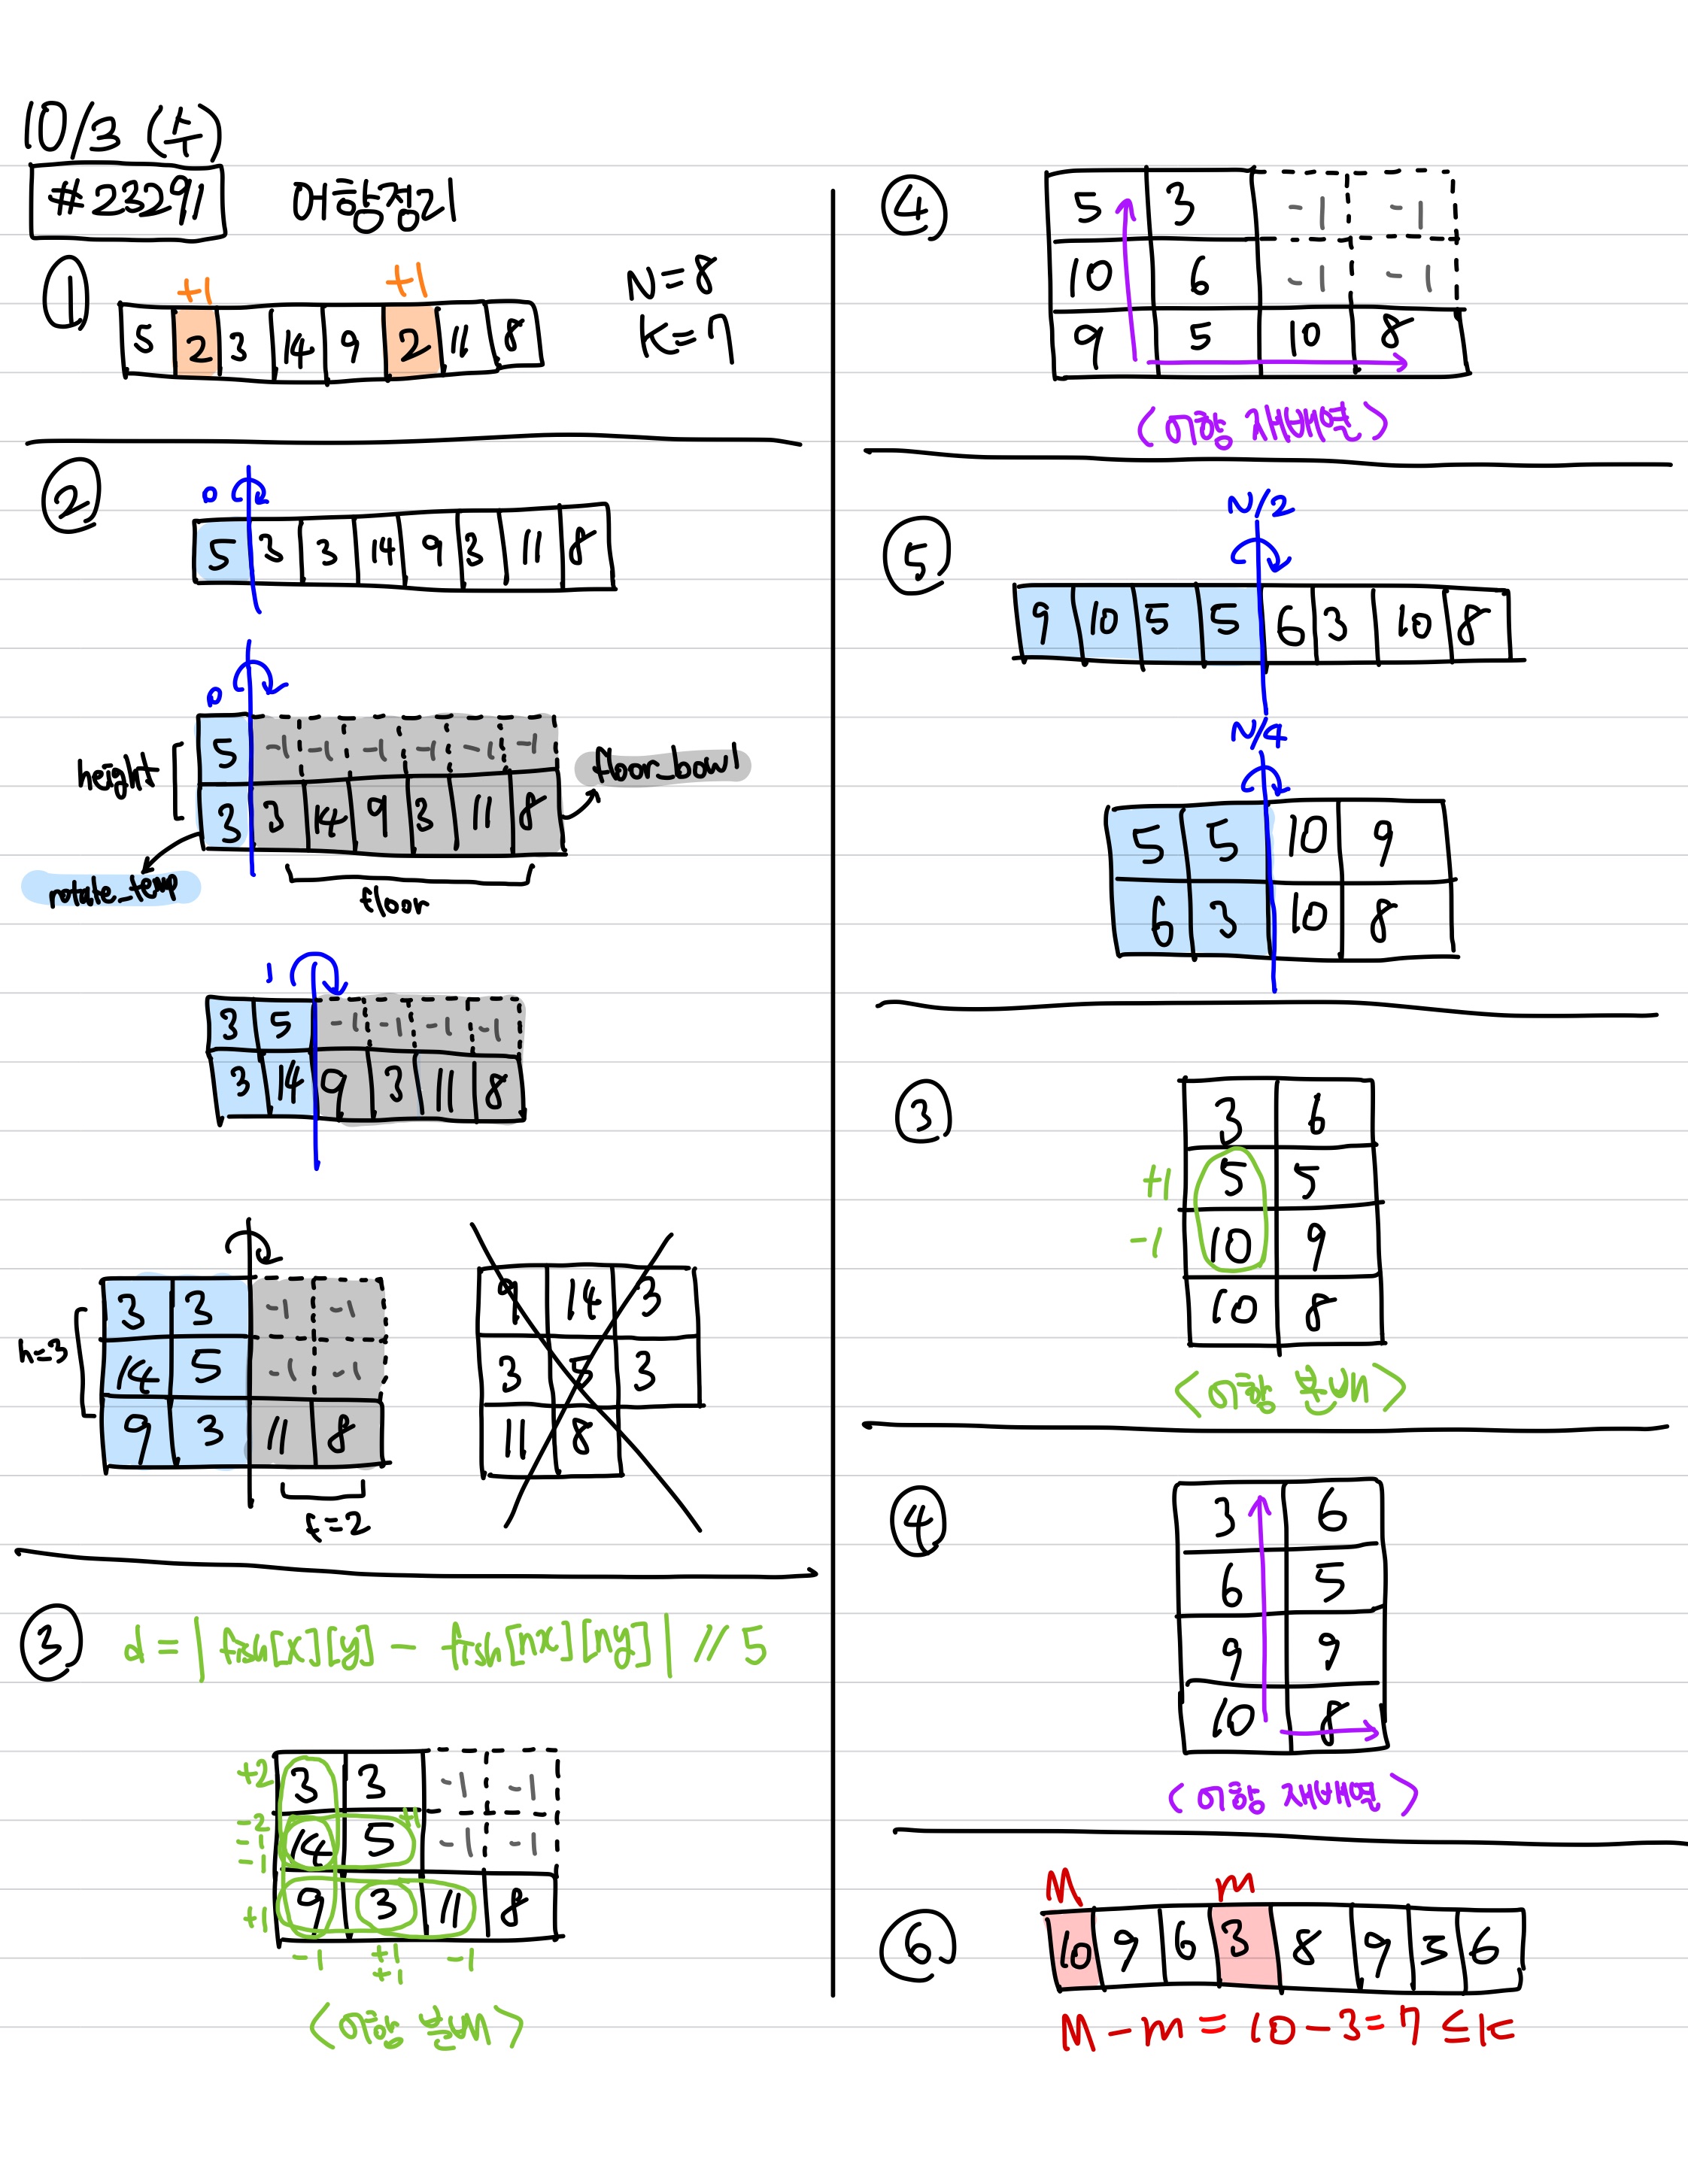 10/3 (수)
#23291 어항정리
① +1 +1 N=8
5 2 3 14 9 2 11 8 K=7
② 0
5 3 3 14 9 3 11 8
0
height 5 -1 -1 -1 -1 -1 -1 floor_bowl
3 3 14 9 3 11 8
rotate_temp floor
1
3 5 -1 -1 -1 -1
3 14 9 3 11 8
3 3 -1 -1
h=3 14 5 -1 -1
9 3 11 8
f=2
9 14 3
3 5 3
11 8
③ d = |fish[x][y] - fish[nx][ny]| // 5
+2 3 3 -1 -1
-2 -1 -1 14 5 +1 -1 -1
+1 9 3 11 8
-1 +1 -1
+1
<어항 분배>
④ 5 3 -1 -1
10 6 -1 -1
9 5 10 8
<어항 재배열>
N/2
⑤
9 10 5 5 6 3 10 8
N/4
5 5 10 9
6 3 10 8
③ 3 6
+1 5 5
-1 10 9
10 8
<어항 분배>
④ 3 6
6 5
9 9
10 8
<어항 재배열>
M m
⑥ 10 9 6 3 8 9 5 6
M - m = 10 - 3 = 7 ≤ K